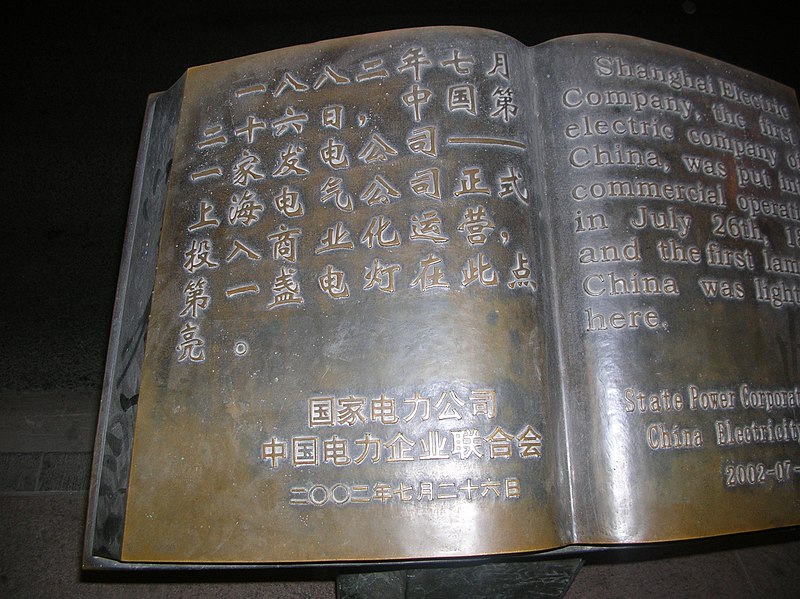 一八八二年七月
二十六日，中国第
一家发电公司——
上海电气公司正式
投入商业化运营，
第一盏电灯在此点
亮。
国家电力公司
中国电力企业联合会
二〇〇二年七月二十六日
Shanghai Electric
Company, the first
electric company of
China, was put int
commercial operati
in July 26th, 18
and the first lam
China was light
here.
State Power Corporat
China Electricity
2002-07-